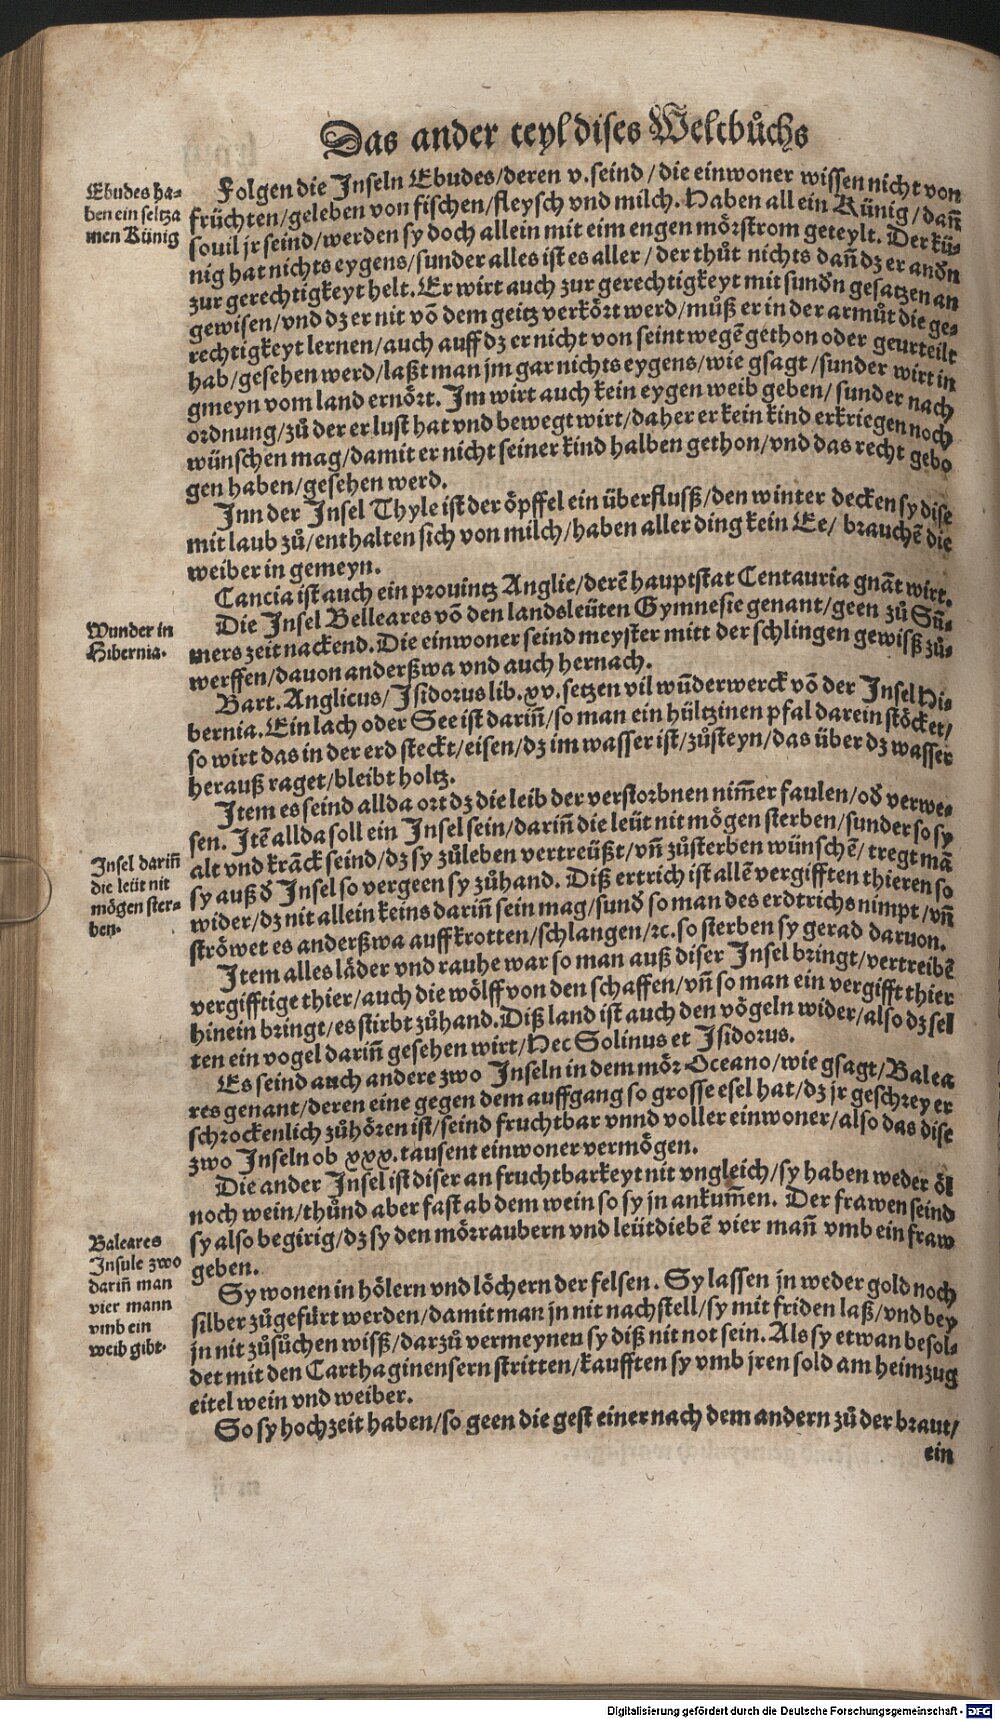 Das ander teyl dises Weltbůchs
Ebudes ha-
ben ein seltza
men Künig
Folgen die Inseln Ebudes/deren v. seind/die einwoner wissen nicht von
früchten/geleben von fischen/fleysch vnd milch. Haben all ein Künig/dañ
souil jr seind/werden sy doch allein mit eim engen mörstrom geteylt. Der kü-
nig hat nichts eygens/sunder alles ist es aller/der thůt nichts dañ dz er andn
zur gerechtigkeyt helt. Er wirt auch zur gerechtigkeyt mit sundn gesatzen an
gewisen/vnd dz er nit võ dem geitz verkört werd/můß er in der armůt die ge-
rechtigkeyt lernen/auch auff dz er nicht von seint wegẽ gethon oder geurteilt
hab/gesehen werd/laßt man jm gar nichts eygens/wie gsagt/sunder wirt in
gmeyn vom land ernört. Im wirt auch kein eygen weib geben/sunder nach
ordnung/zů der er lust hat vnd bewegt wirt/daher er kein kind erkriegen noch
wünschen mag/damit er nicht seiner kind halben gethon/vnd das recht gebo
gen haben/gesehen werd.
Inn der Insel Thyle ist der öpffel ein überflusß/den winter decken sy dise
mit laub zů/enthalten sich von milch/haben aller ding kein Ee/brauchẽ die
weiber in gemeyn.
Cancia ist auch ein prouintz Anglie/derẽ hauptstat Centauria gnãt wirt.
Wunder in
Hibernia.
Die Insel Belleares võ den landsleüten Gymnesie genant/geen zů Sũ-
mers zeit nackend. Die einwoner seind meyster mitt der schlingen gewisß zů-
werffen/dauon anderßwa vnd auch hernach.
Bart. Anglicus/Isidorus lib. xv. setzen vil wũderwerck võ der Insel Hi-
bernia. Ein lach oder See ist dariñ/so man ein hültzinen pfal darein stöcket/
so wirt das in der erd steckt/eisen/dz im wasser ist/zůsteyn/das über dz wasser
herauß raget/bleibt holtz.
Item es seind allda ort dz die leib der verstorbnen nim̃er faulen/od verwe-
sen. Itẽ allda soll ein Insel sein/dariñ die leüt nit mögen sterben/sunder so sy
Insel dariñ
die leüt nit
mögen ster-
ben.
alt vnd krãck seind/dz sy zůleben vertreüßt/vñ zůsterben wünschẽ/tregt mã
sy auß d Insel so vergeen sy zůhand. Diß ertrich ist allẽ vergifften thieren so
wider/dz nit allein keins dariñ sein mag/sund so man des erdtrichs nimpt/vñ
ströwet es anderßwa auff krotten/schlangen/ꝛc. so sterben sy gerad daruon.
Item alles läder vnd rauhe war so man auß diser Insel bringt/vertreibẽ
vergifftige thier/auch die wölff von den schaffen/vñ so man ein vergifft thier
hinein bringt/es stirbt zůhand. Diß land ist auch den vögeln wider/also dz sel
ten ein vogel dariñ gesehen wirt/Hec Solinus et Isidorus.
Es seind auch andere zwo Inseln in dem mör Oceano/wie gsagt/Balea
res genant/deren eine gegen dem auffgang so grosse esel hat/dz jr geschrey er
schrockenlich zůhören ist/seind fruchtbar vnnd voller einwoner/also das dise
zwo Inseln ob xxx. tausent einwoner vermögen.
Die ander Insel ist diser an fruchtbarkeyt nit vngleich/sy haben weder öl
noch wein/thůnd aber fast ab dem wein so sy jn ankum̃en. Der frawen seind
sy also begirig/dz sy den mörraubern vnd leütdiebẽ vier mañ vmb ein fraw
geben.
Baleares
Insule zwo
dariñ man
vier mann
vmb ein
weib gibt.
Sy wonen in hölern vnd löchern der felsen. Sy lassen jn weder gold noch
silber zůgefürt werden/damit man jn nit nachstell/sy mit friden laß/vnd bey
jn nit zůsůchen wisß/darzů vermeynen sy diß nit not sein. Als sy etwan besol-
det mit den Carthaginensern stritten/kaufften sy vmb jren sold am heimzug
eitel wein vnd weiber.
So sy hochzeit haben/so geen die gest einer nach dem andern zů der braut/
ein
Digitalisierung gefördert durch die Deutsche Forschungsgemeinschaft - DFG